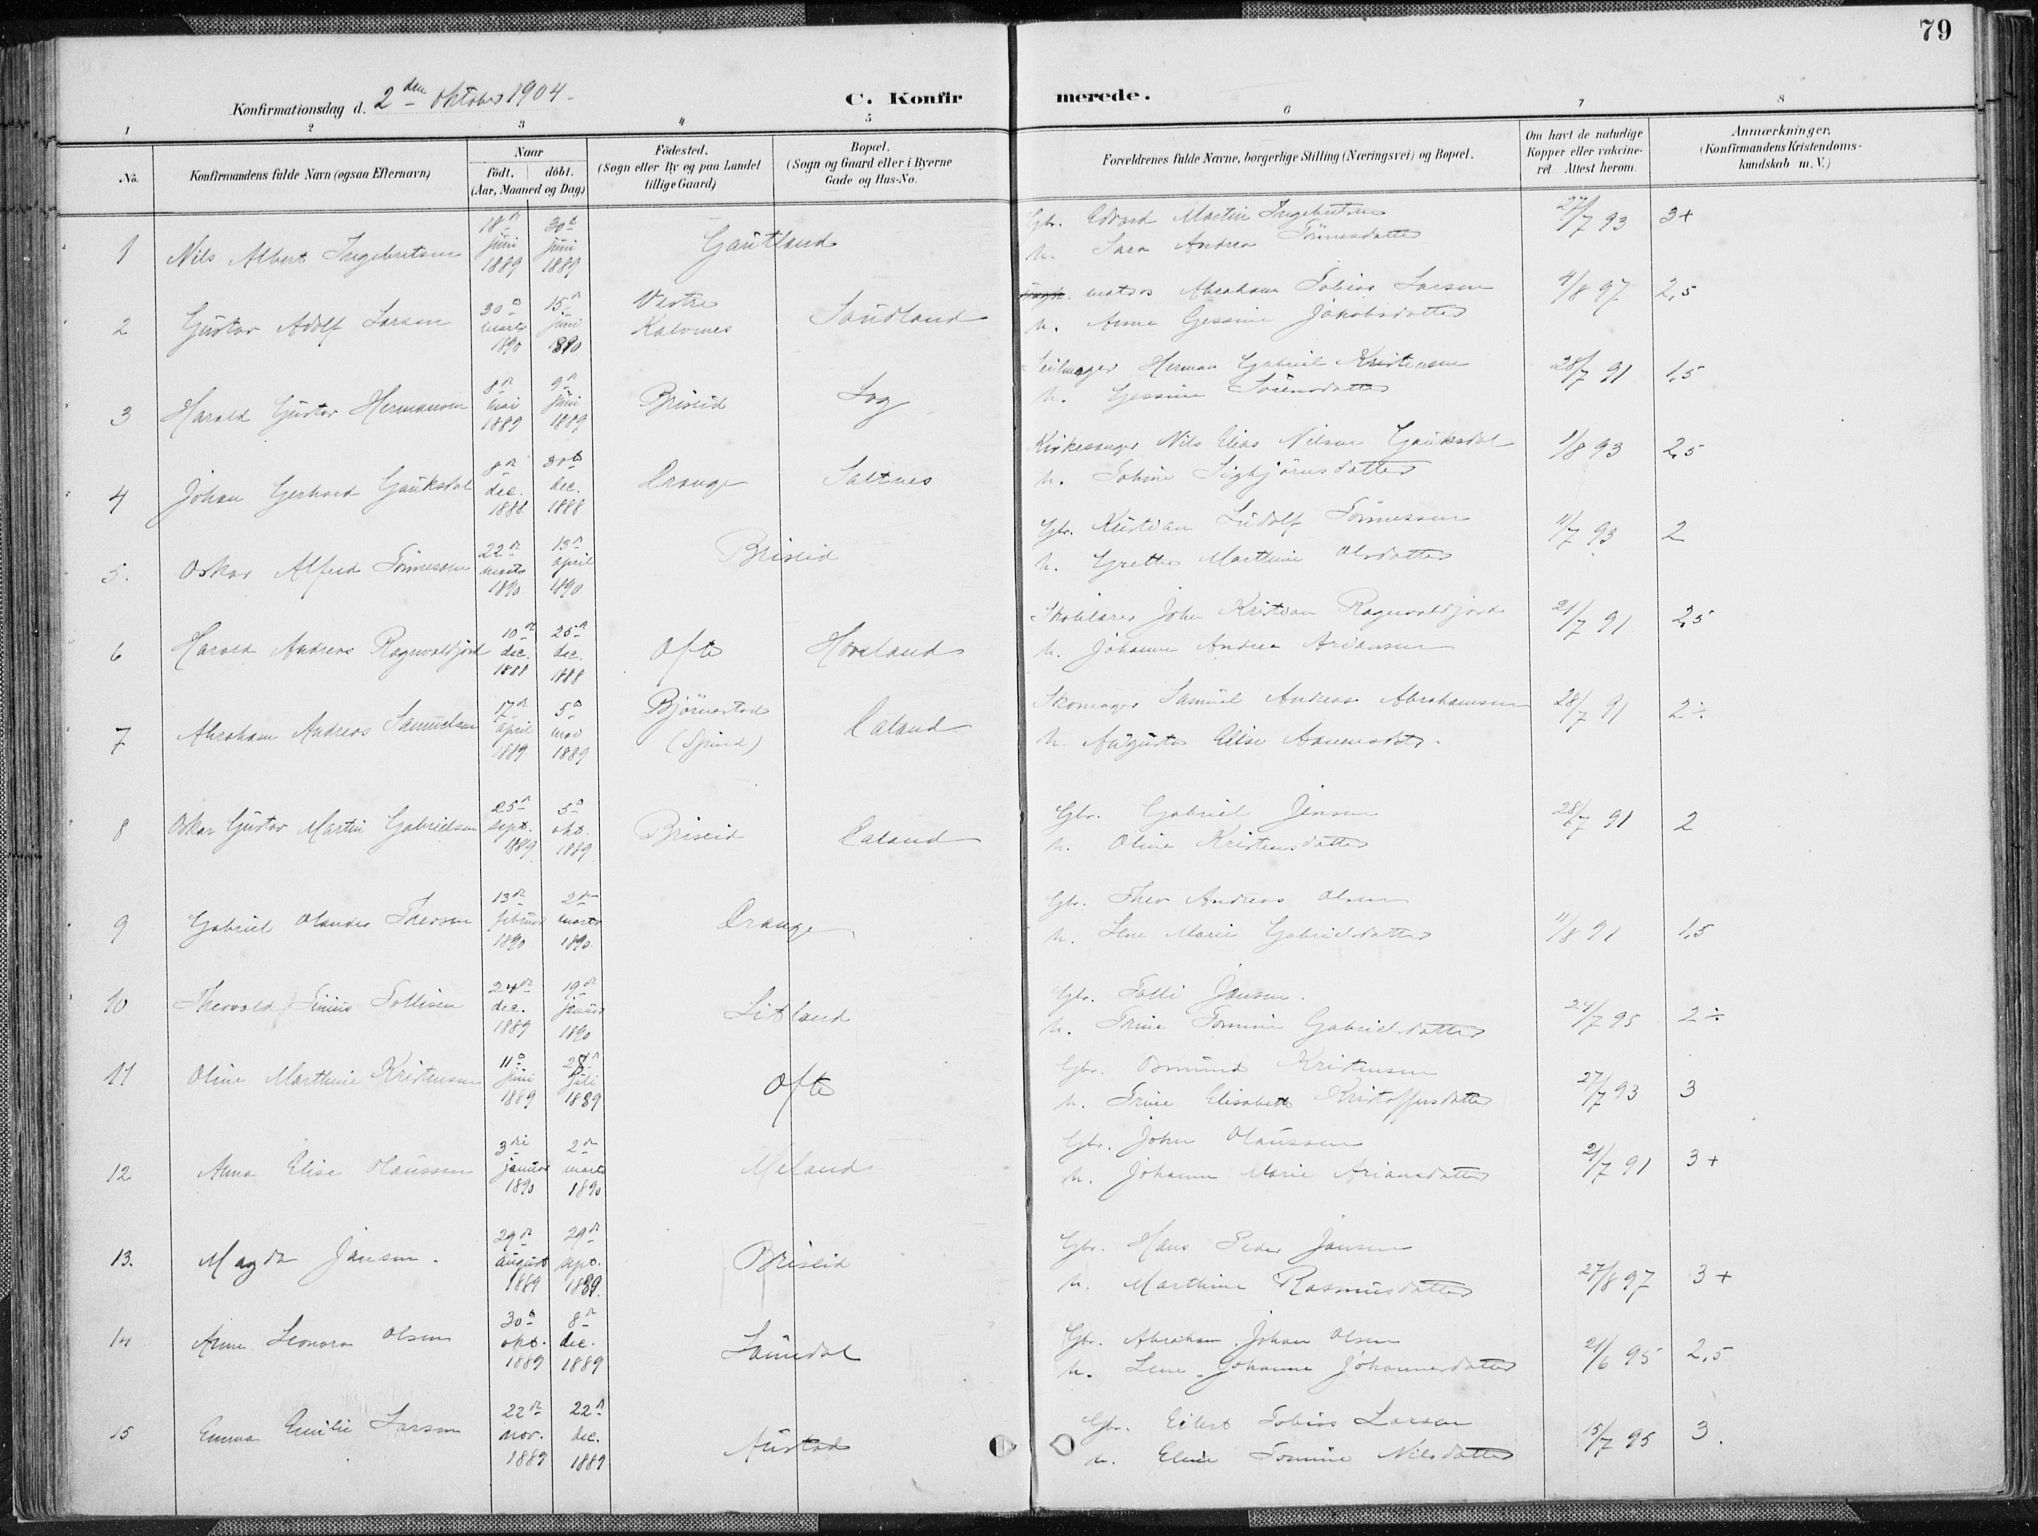 79
Konfirmationsdag d. 2den oktober 1904.
C. Konfirmerede.
1 2 3 4 5 6 7 8
No.
Konfirmandens fulde Navn (ogsaa Efternavn)
Naar
födt. döbt.
(Aar, Maaned og Dag)
Födested.
(Sogn eller By og paa Landet
tillige Gaard)
Bopæl.
(Sogn og Gaard eller i Byerne
Gade og Hus-No.
Forældrenes fulde Navne, borgerlige Stilling (Næringsvei) og Bopæl.
Om havt de naturlige
Kopper eller vakcine-
ret. Attest herom.
Anmærkninger.
(Konfirmandens Kristendoms-
kundskab m. V.)
1 Nils Albert Ingebretsen 18de juni 1889 30te juni 1889 Gautland
Gbr. Edvard Martin Ingebretsen 27/7 93 3+
h. Sara Andrea Tönnesdatter
2 Gustav Adolf Larsen 30te marts 1890 15de juni 1890 Vestre Kalvenes Sandland
matros Abraham Tobias Larsen 4/8 97 2,5
h. Anne Gessine Jakobsdatter
3 Harald Gustav Hermansen 8de mai 1889 9de juni 1889 Briseid Log
Seilmager Herman Gabriel Kristensen 28/7 91 1,5
h. Gessine Sörensdatter
4 Johan Gerhard Gauksdal 8de dec. 1888 30te dec. 1888 Drange Saltnes
Kirkesanger Nils Elias Nilsen Gauksdal 1/8 93 2,5
h. Tobine Sigbjörnsdatter
5. Oskar Alfred Tönnessen 22de marts 1890 13de april 1890 Briseid
Gbr. Kristian Ludolf Tönnessen 11/7 93 2
h. Grethe Marthine Olsdatter
6 Harald Andreas Ragnvaldjord 10de dec. 1888 25de dec. 1888 Ofte Hoveland
Skolelærer John Kristian Ragnvaldjord 21/7 91 2,5
h. Johanne Andrea Ariansen
7 Abraham Andreas Samuelsen 17de april 1889 5te mai 1889 Björnestad (Spind) Raland
Skomager Samuel Andreas Abrahamsen 28/7 91 2÷
h. Augusta Elise Aanensdtr.
8 Oskar Gustav Martin Gabrielsen 25de sept. 1889 5te okt. 1889 Briseid Raland
Gbr. Gabriel Jensen 28/7 91 2
h. Oline Kristensdatter
9 Gabriel Olander Theosen 13de februar 1890 2den marts 1890 Drange
Gbr. Theo Andreas Olsen
h. Lene Marie Gabrielsdatter 11/8 91 1,5
10 Thorvald Tinius Tollisen 24de dec. 1889 19de januar 1890 Litland
Gbr. Tolli Jansen.
h. Trine Tomine Gabrielsdatter 24/7 95 2÷
11 Oline Marthine Kristensen 11te juni 1889 28de juli 1889 Ofte
Gbr. Osmund Kristensen
h. Trine Elisabeth Kristoffersdatter 27/7 93 3
12 Anna Elise Olaussen 3die januar 1890 2den marts 1890 Meland
Gbr. John Olaussen
h. Johanne Marie Ariansdatter 21/7 91 3+
13. Magda Jansen. 29de august 1889 29de sept. 1889. Briseid
Gbr. Hans Peder Jansen
h. Marthine Rasmusdatter 27/8 97 3+
14 Anne Leonora Olsen 30te okt. 1889 8de dec. 1889 Laudal
Gbr. Abraham Johan Olsen
h. Lene Johanne Johannesdatter 21/6 95 2,5
15 Emma Emilie Larsen 22de nov. 1889 22de dec. 1889 Austad
Gbr. Eilert Tobias Larsen
h. Eline Tomine Nilsdatter 15/7 95 3.